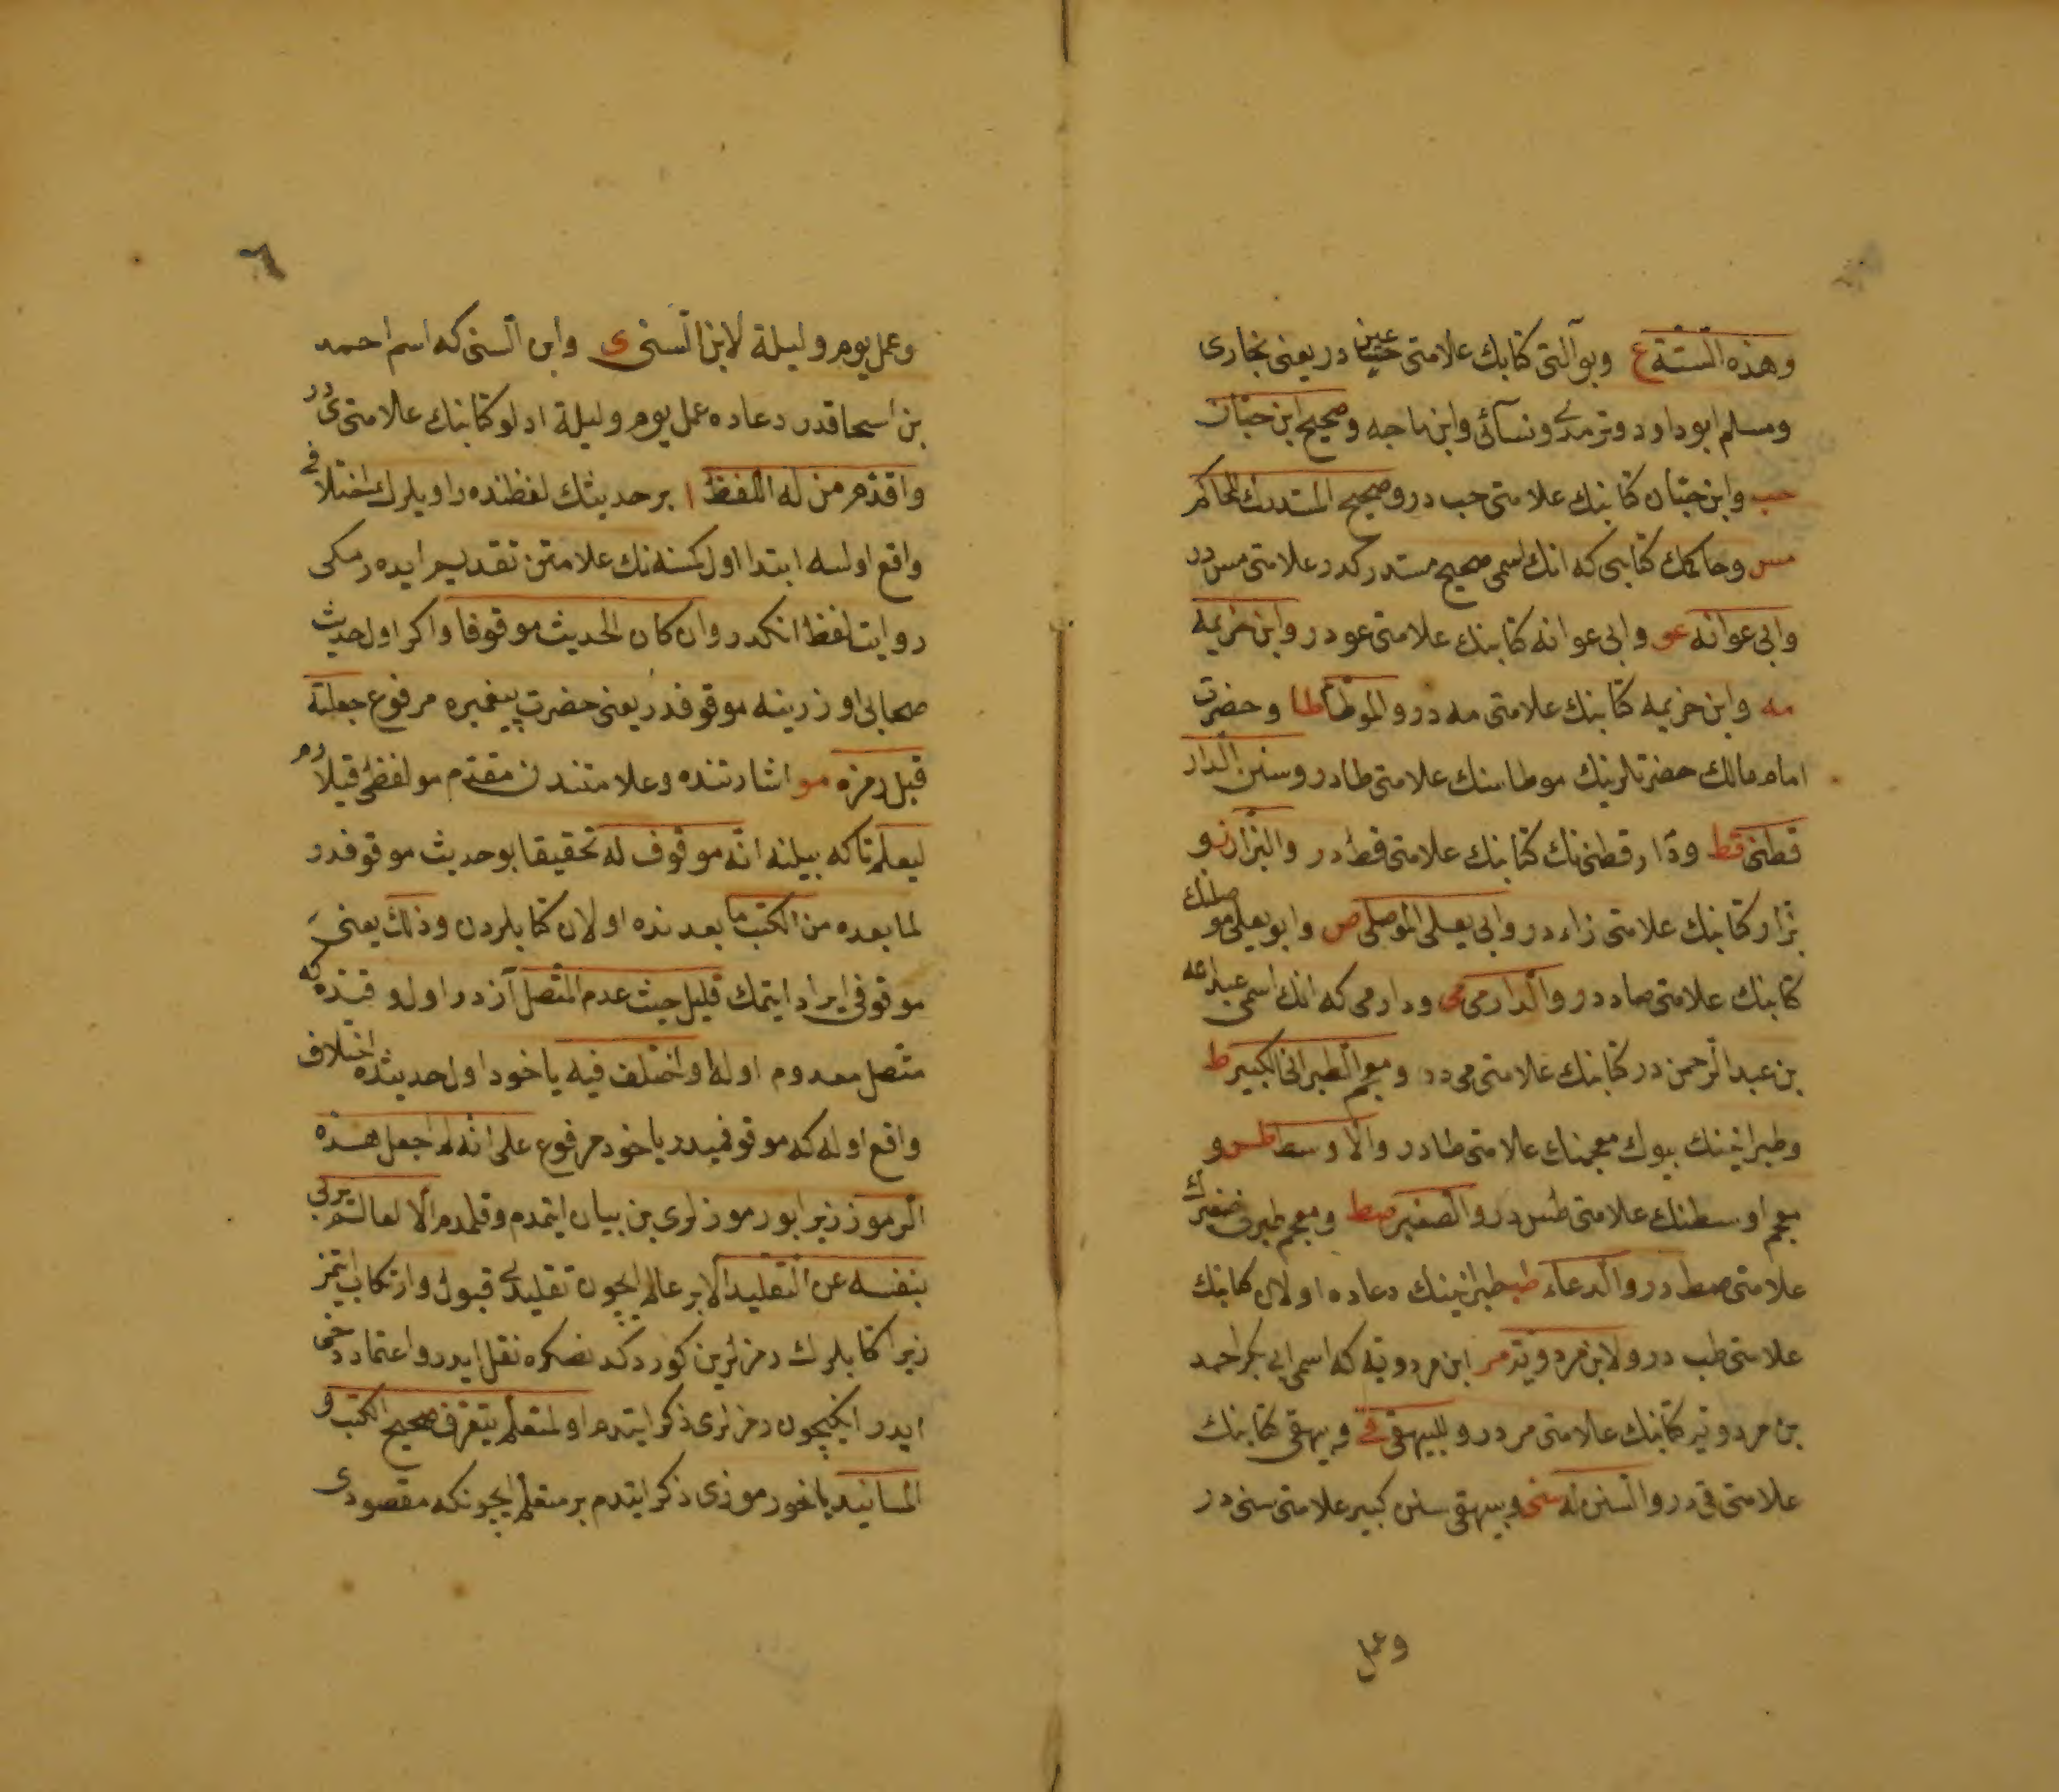 وهذه الستة ع وبو آلتی كتابك علامتی عین در یعنی بخاری
ومسلم ابوداود وترمذی ونسآئی وابن ماجه وصحیح ابن حبان
حب وابن حبان كتابنك علامتی حب در وصحیح المستدرك للحاكم
مس وحاكمك كتابی كه انك اسمی صحیح مستدركدر علامتی مس در
وابی عوانه عو وابی عوانه كتابنك علامتی عو در وابن خزیمه
مه وابن خزیمه كتابنك علامتی مه در والموطأ طا وحضرت
امام مالك حضرتلرینك موطاسنك علامتی طا در وسنن الدار
قطنی قط ودار قطنی نك كتابنك علامتی قط در والبزار ز و
بزار كتابنك علامتی زاء در وابی یعلی الموصلی ص وابو یعلی موصلنك
كتابنك علامتی صاد در والدارمی می ودارمی كه انك اسمی عبد الله
بن عبد الرحمن در كتابنك علامتی می در ومعجم الطبرانی الكبیر ط
وطبرانینك بیوك معجمنك علامتی طا در والاوسط طس و
معجم اوسطنك علامتی طس در والصغیر صط ومعجم طبرنی صغیرك
علامتی صط در والدعاء طب طبرانینك دعاده اولان كتابنك
علامتی طب در ولابن مردویه مر ابن مردویه كه اسمی ابی بكر احمد
بن مردویه كتابنك علامتی مر در وللبیهقی قی وبیهقی كتابنك
علامتی قی در والسنن له سنی وبیهقی سنن كبیر علامتی سنی در
وعمل
٦
وعمل یوم ولیلة لابن السنی ی وابن السنی كه اسم احمد
بن اسحاقدر دعاده عمل یوم ولیلة ادلو كتابنك علامتی ی در
واقدم من له اللفظ ا بر حدیثك لفظنده راویلرك اختلافی
واقع اولسه ابتدا اول كمسنه نك علامتن تقدیم ایده رمكی
روایت لفظ انكدر وان كان الحدیث موقوفا واكر اول حدیث
صحابی اوزرینه موقوفدر یعنی حضرت پیغمبره مرفوع جعلت
قبل رمزه مو اشارتنده وعلامتندن مقدم مو لفظی قیلارم
لیعلم تاكه بیلنه انه موقوف له تحقیقا بو حدیث موقوفدر
لما بعده من الكتب ما بعدنده اولان كتابلردن وذلك یعنی
موقوفی ایراد ایتمك قلیل حیث عدم المتصل آزدر اول وقتده كه
متصل معدوم اوله او اختلف فیه یاخود اول حدیثده اختلاف
واقع اوله كه موقوفمیدر یاخود مرفوع علی انه لم اجعل هذه
الرموز زیرا بو رموزلری بن بیان ایتمدم وقلمدم الا لعالم یربی
بنفسه عن التقلید الا بر عالم ایچون تقلیدی قبول وارتكاب ایتمز
زیرا كتابلرك رمزلرین كوردكدنصكره نقل ایدر واعتماد دخی
ایدر انكیچون رمزلری ذكر ایتدم او لمتعلم یتعرف صحیح الكتب و
المسانید یاخود رموزی ذكر ایتدم بر متعلم ایچونكه مقصودی